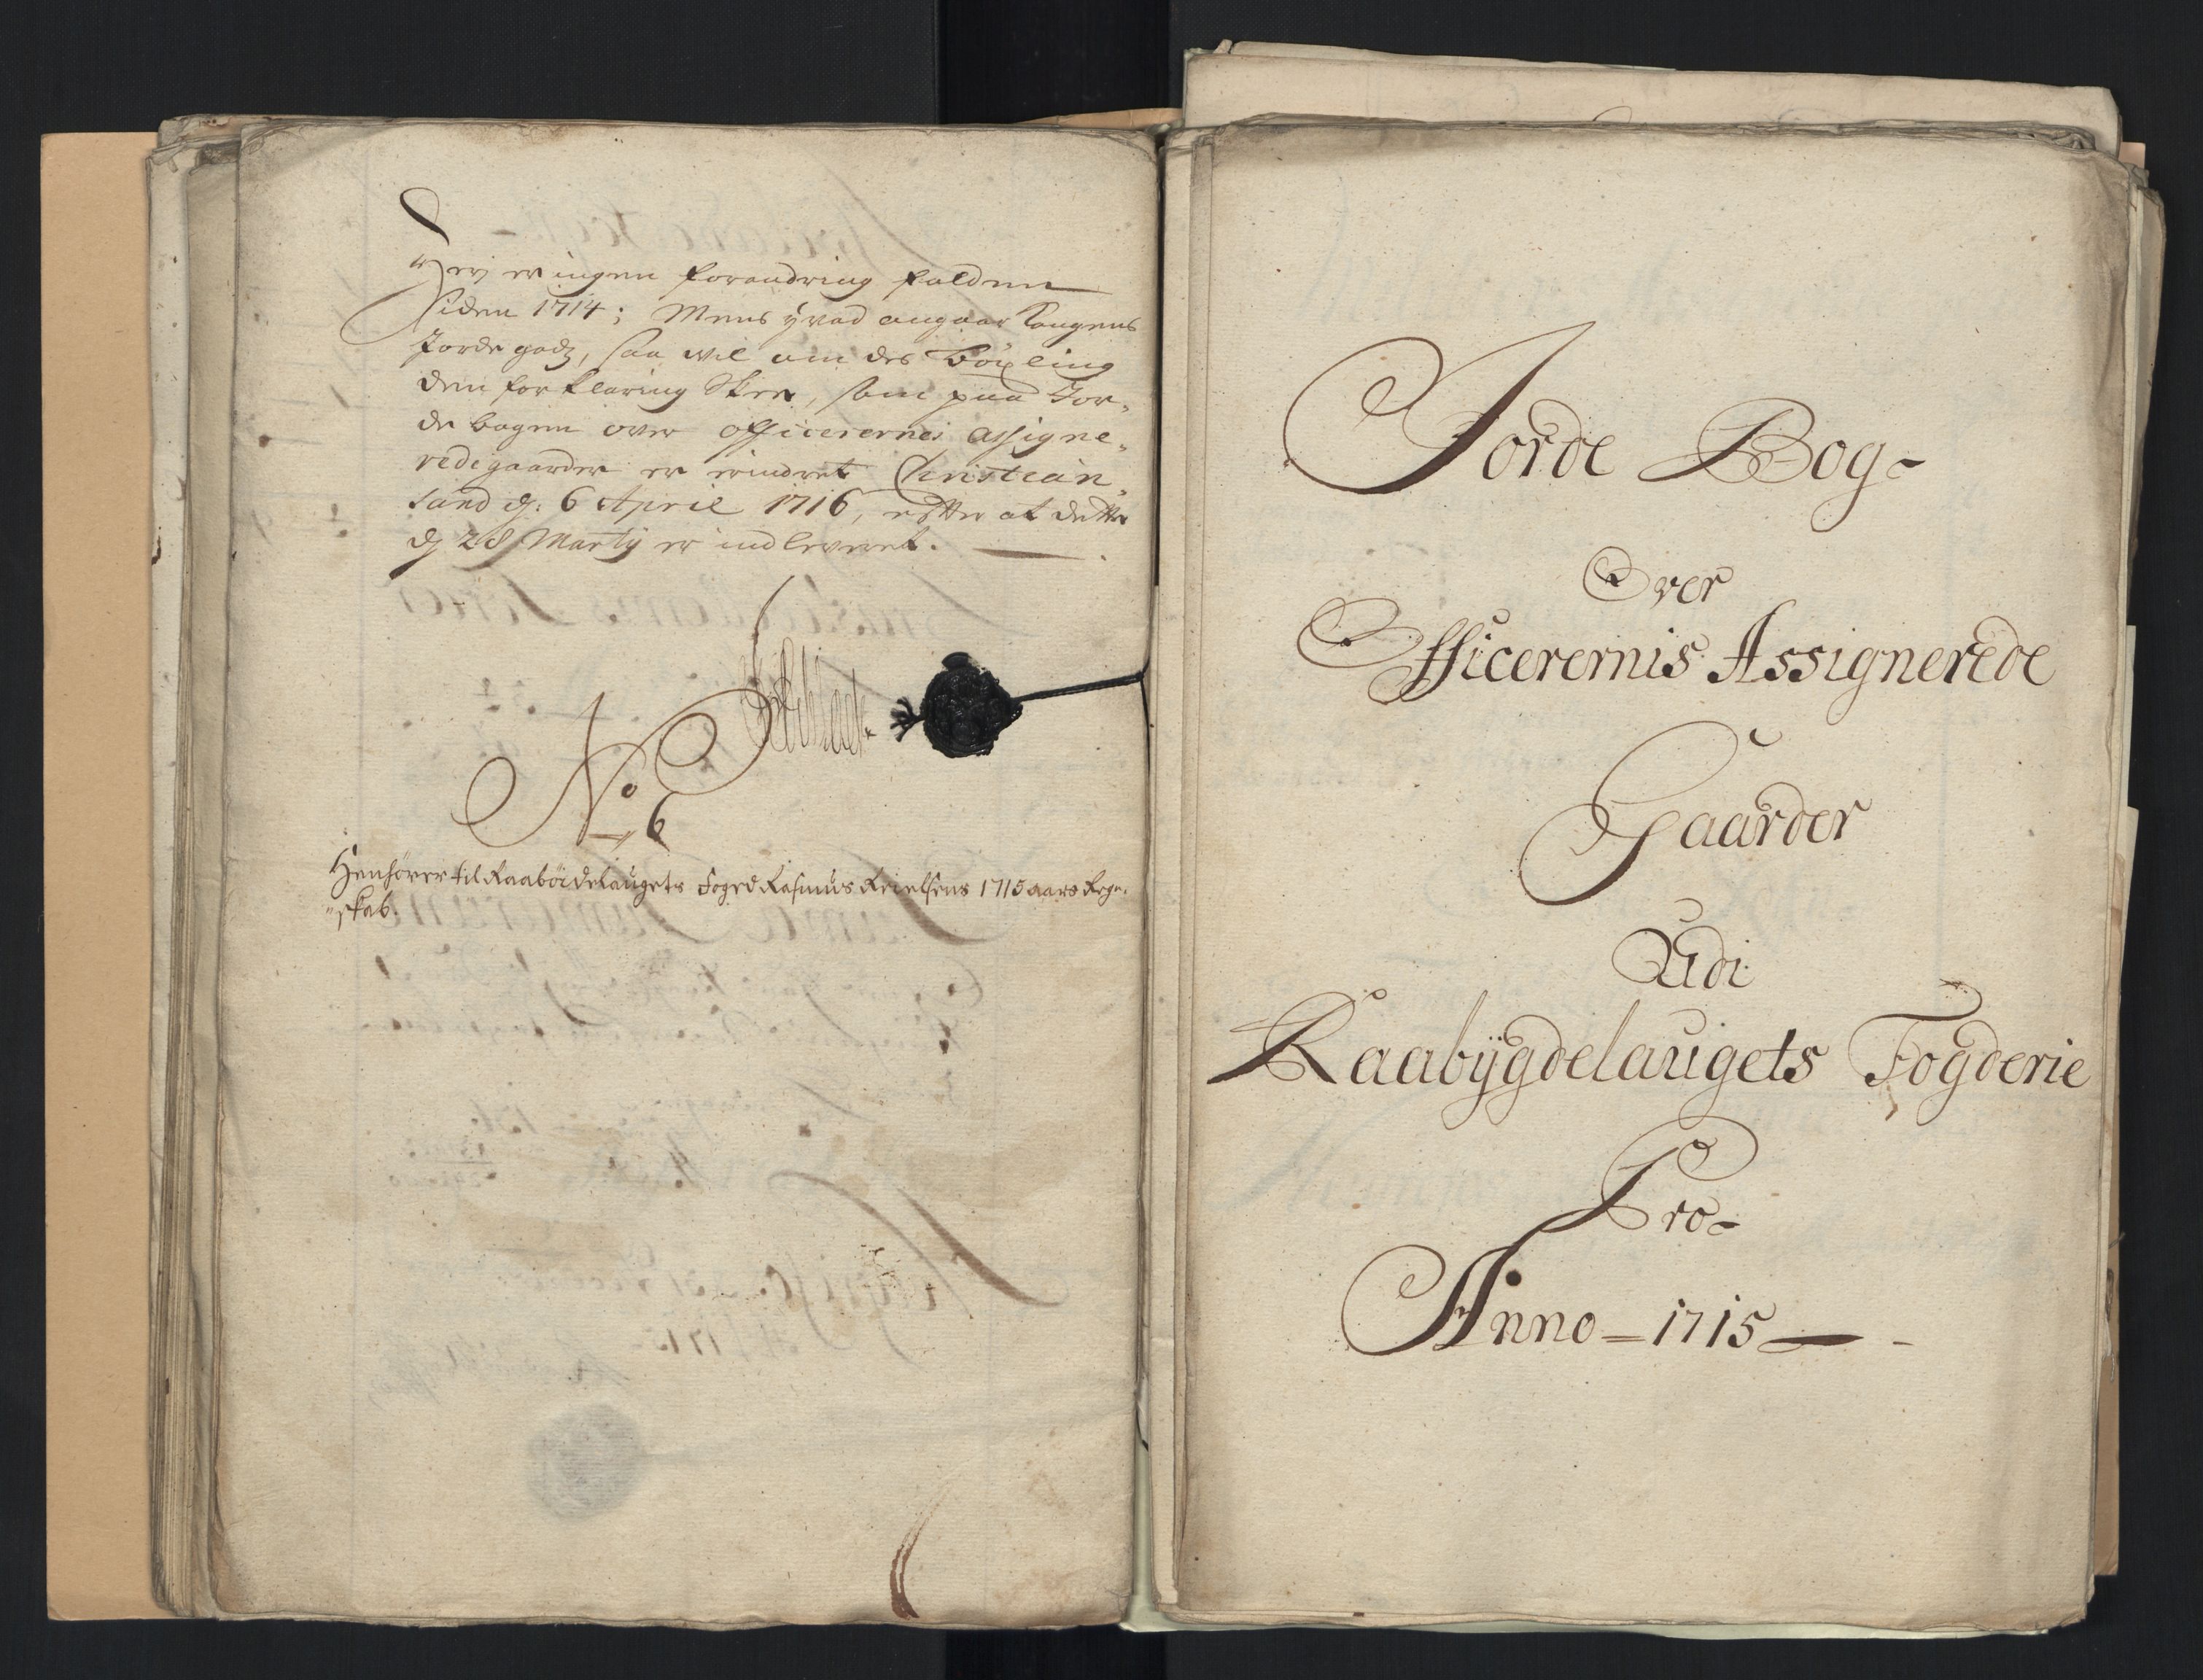 Herj er ingen forandring falden
siden 1714; Mens hvad angaar Kongens
Jorde godz, saa vil om des böxling
den forklaring Skee, som paa Jor¬
de bogen over officerernes assigne¬
rede gaarder er erindret Christian¬
sand d: 6 April 1716, efter at dette
d 28 Martij er indleveret.
No 6
Henhörer til Raaböidelaugets Foged Rasmus 1715 aars Regn¬
skab.
Jorde Bog
Over
Officerernis Assignerede
Gaarder
Udi
Raabÿgdelaugets Fogderie
Pro
Anno 1715